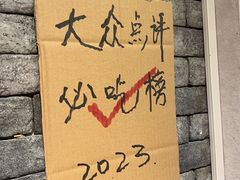 大众点评
必吃榜
2023.